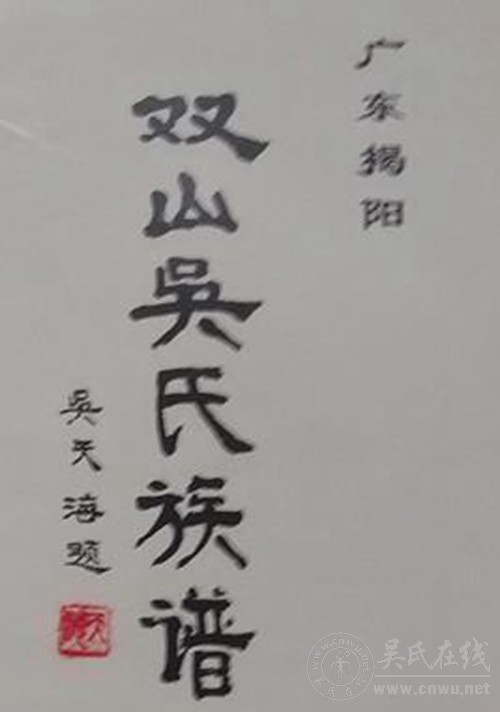 广东揭阳
双山吳氏族谱
吳天海题
吴氏在线
www.cnwu.net